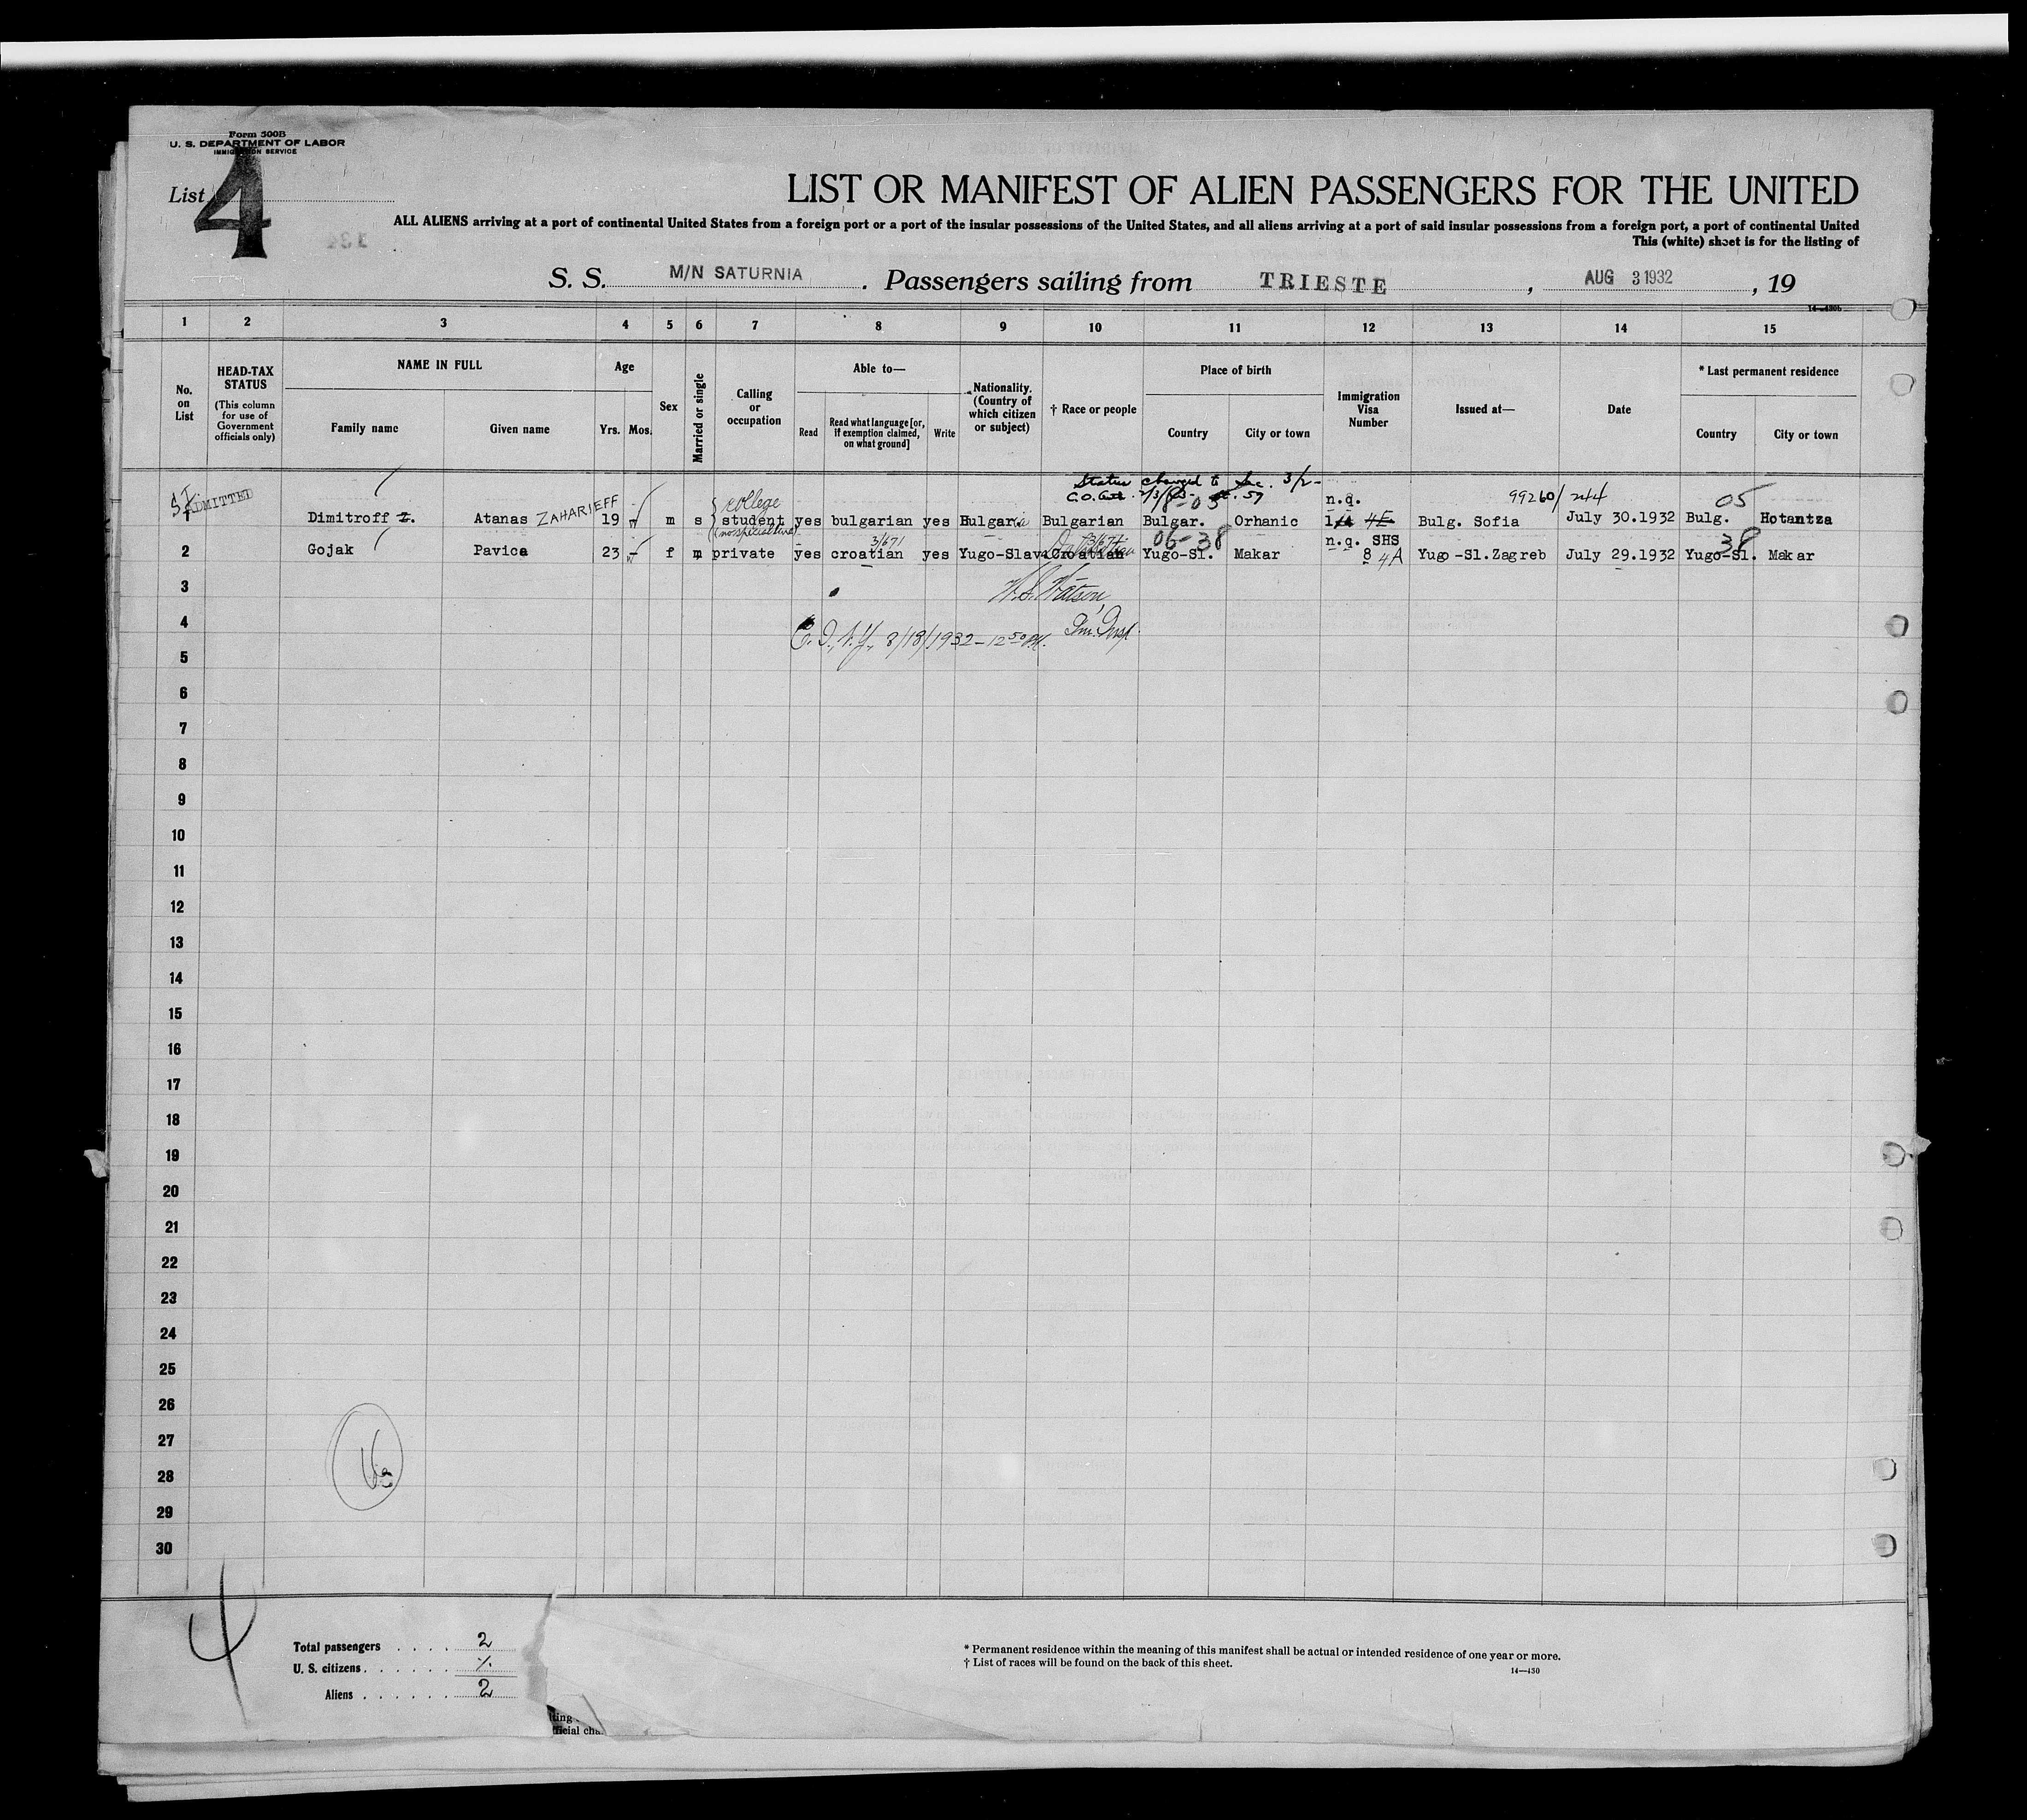 Form 500B
U. S. DEPARTMENT OF LABOR
IMMIGRATION SERVICE
List 4
LIST OR MANIFEST OF ALIEN PASSENGERS FOR THE UNITED
ALL ALIENS arriving at a port of continental United States from a foreign port or a port of the insular possessions of the United States, and all aliens arriving at a port of said insular possessions from a foreign port, a port of continental United
This (white) sheet is for the listing of
S. S. M/N SATURNIA. Passengers sailing from TRIESTE, AUG 3 1932, 19
14-430b
1 2 3 4 5 6 7 8 9 10 11 12 13 14 15
No. on List
HEAD-TAX STATUS (This column for use of Government officials only)
NAME IN FULL
Family name
Given name
Age
Yrs. Mos.
Sex
Married or single
Calling or occupation
Able to—
Read
Read what language [or, if exemption claimed, on what ground]
Write
Nationality. (Country of which citizen or subject)
† Race or people
Place of birth
Country
City or town
Immigration Visa Number
Issued at—
Date
* Last permanent residence
Country
City or town
Status changed to Sec. 3/2-
college n.q. 99260/244 05
ADMITTED
1 Dimitroff Z. Atanas ZAHARIEFF 19 m s student yes bulgarian yes Bulgaria Bulgarian Bulgar. Orhanic 4E Bulg. Sofia July 30.1932 Bulg. Hotantza
3/671 06-38 n.q. SHS 38
2 Gojak Pavica 23 - f m private yes croatian yes Yugo-Slav. Croatian Yugo-Sl. Makar 8 4A Yugo-Sl.Zagreb July 29.1932 Yugo-Sl. Makar
3
W.S. Watson,
4
Im. Insp.
8/18/1932 - 12 50 PM.
5
6
7
8
9
10
11
12
13
14
15
16
17
18
19
20
21
22
23
24
25
26
27
28
29
30
4
Total passengers . . . . 2
U. S. citizens . . . . . . %
Aliens . . . . . . 2
* Permanent residence within the meaning of this manifest shall be actual or intended residence of one year or more.
† List of races will be found on the back of this sheet.
14-430